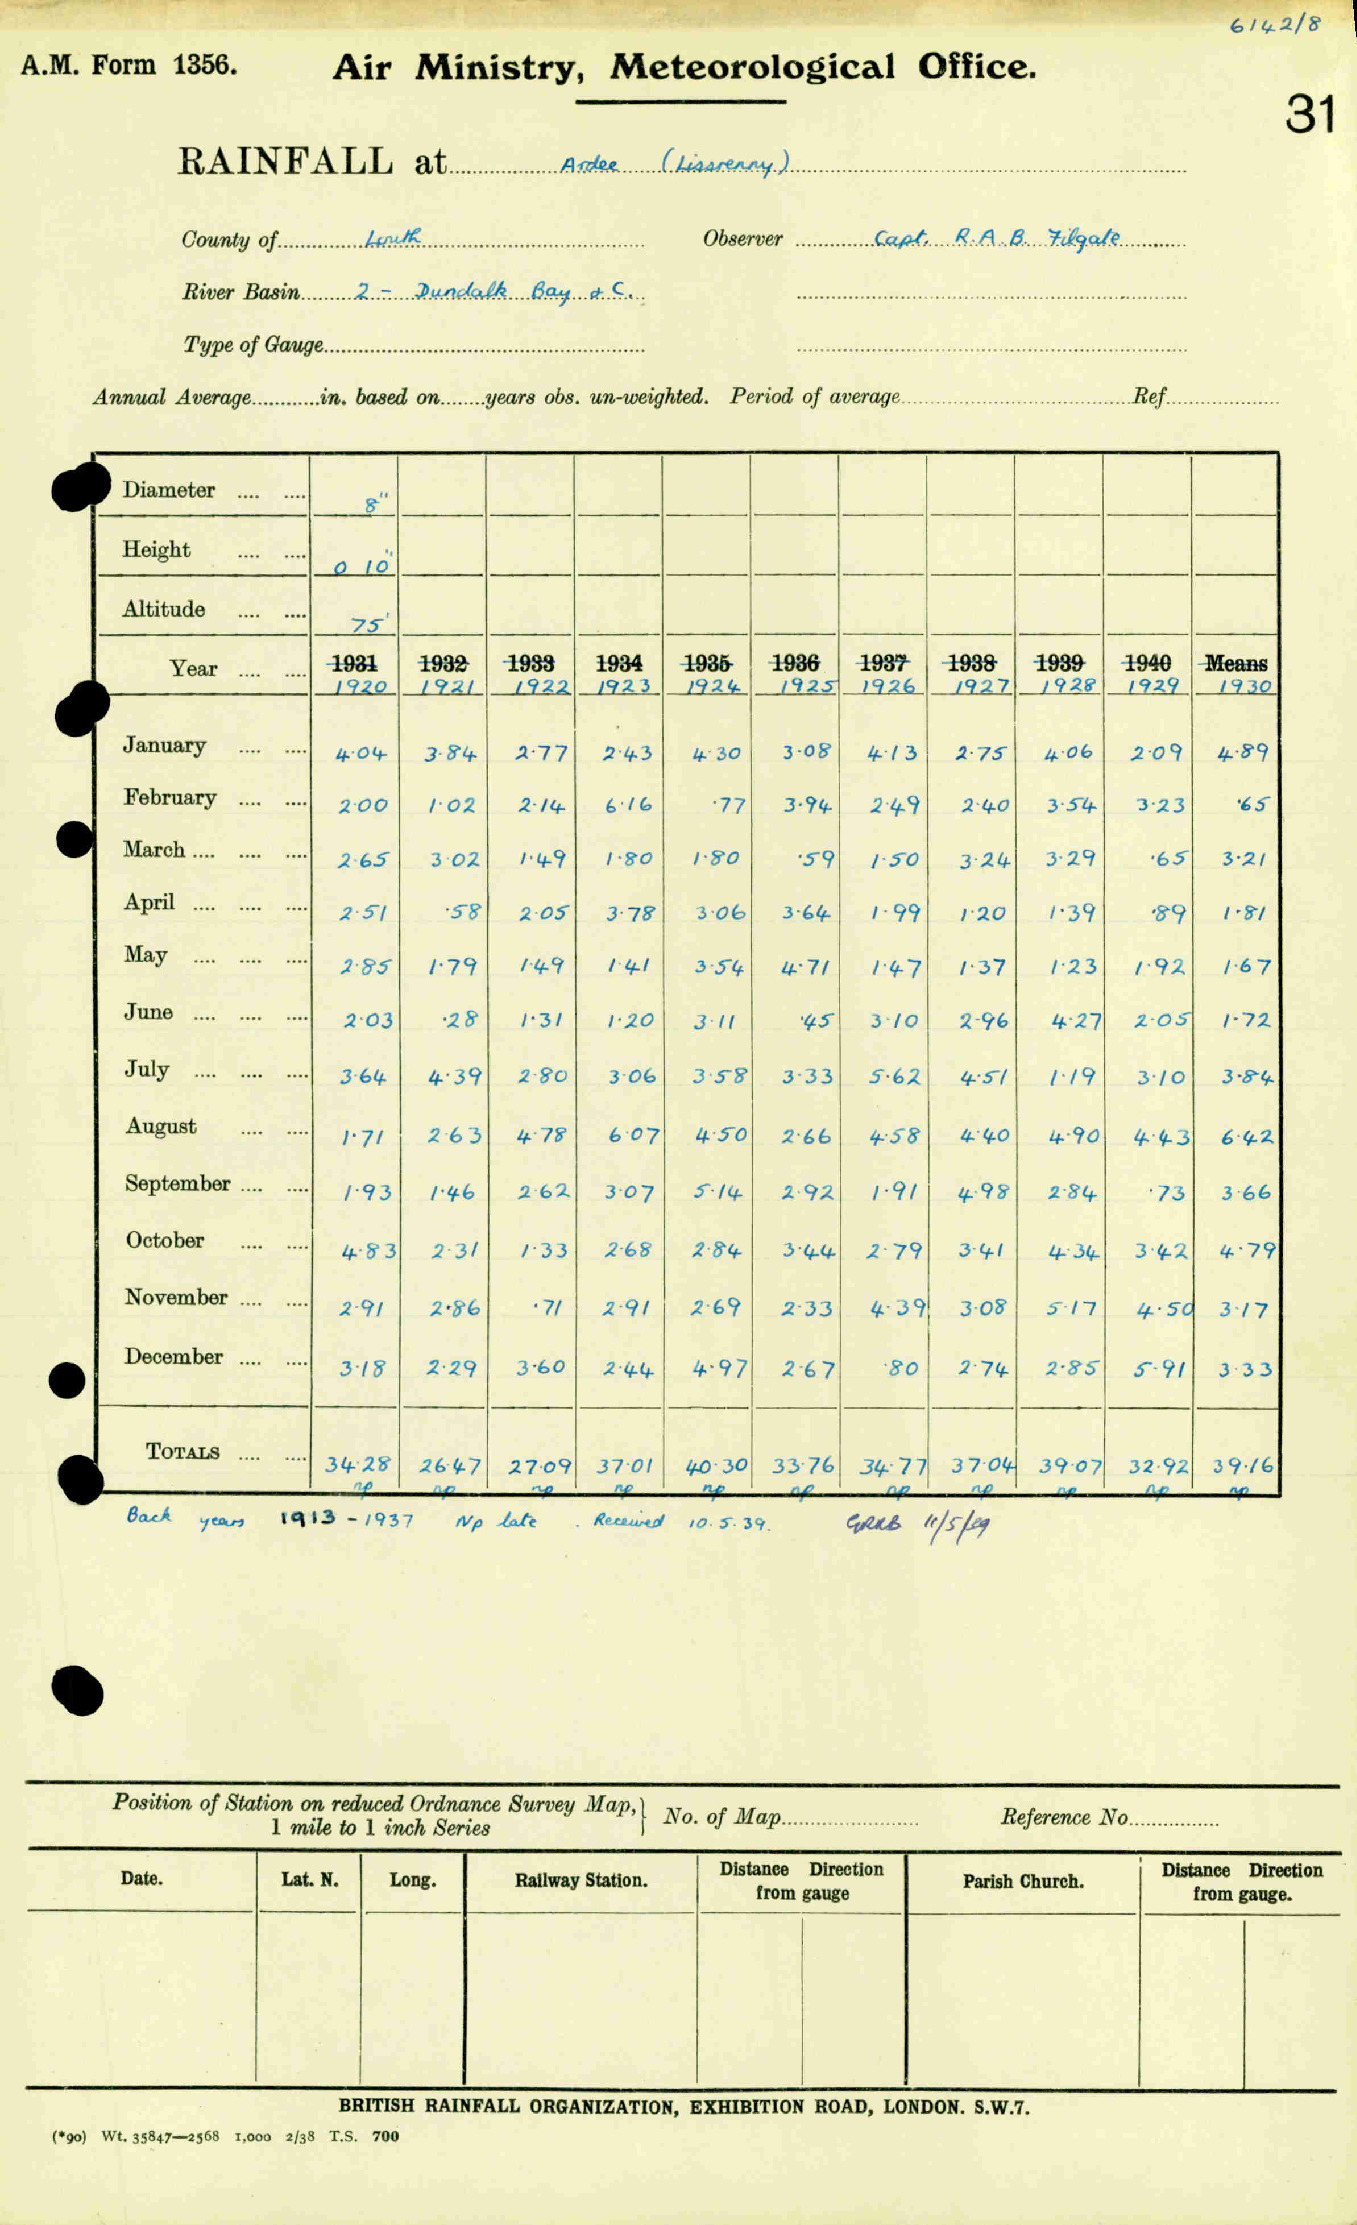 6142/8
A.M. Form 1356. Air Ministry, Meteorological Office.
31
RAINFALL at Ardee (Lissrenny)
County of Louth Observer Capt. R.A.B. Filgate
River Basin 2 - Dundalk Bay & C.
Type of Gauge
Annual Average in. based on years obs. un-weighted. Period of average Ref
Diameter 8"
Height 0 10"
Altitude 75'
Year 1931 1932 1933 1934 1935 1936 1937 1938 1939 1940 Means
1920 1921 1922 1923 1924 1925 1926 1927 1928 1929 1930
January 4.04 3.84 2.77 2.43 4.30 3.08 4.13 2.75 4.06 2.09 4.89
February 2.00 1.02 2.14 6.16 .77 3.94 2.49 2.40 3.54 3.23 .65
March 2.65 3.02 1.49 1.80 1.80 .59 1.50 3.24 3.29 .65 3.21
April 2.51 .58 2.05 3.78 3.06 3.64 1.99 1.20 1.39 .89 1.81
May 2.85 1.79 1.49 1.41 3.54 4.71 1.47 1.37 1.23 1.92 1.67
June 2.03 .28 1.31 1.20 3.11 .45 3.10 2.96 4.27 2.05 1.72
July 3.64 4.39 2.80 3.06 3.58 3.33 5.62 4.51 1.19 3.10 3.84
August 1.71 2.63 4.78 6.07 4.50 2.66 4.58 4.40 4.90 4.43 6.42
September 1.93 1.46 2.62 3.07 5.14 2.92 1.91 4.98 2.84 .73 3.66
October 4.83 2.31 1.33 2.68 2.84 3.44 2.79 3.41 4.34 3.42 4.79
November 2.91 2.86 .71 2.91 2.69 2.33 4.39 3.08 5.17 4.50 3.17
December 3.18 2.29 3.60 2.44 4.97 2.67 .80 2.74 2.85 5.91 3.33
TOTALS 34.28 26.47 27.09 37.01 40.30 33.76 34.77 37.04 39.07 32.92 39.16
np np np np np np np np np np np
Back years 1913 - 1937 Np late. Received 10.5.39. GRRB 11/5/39
Position of Station on reduced Ordnance Survey Map, } No. of Map Reference No.
1 mile to 1 inch Series
Date. Lat. N. Long. Railway Station. Distance Direction from gauge Parish Church. Distance Direction from gauge.
BRITISH RAINFALL ORGANIZATION, EXHIBITION ROAD, LONDON. S.W.7.
(*90) Wt. 35847—2568 1,000 2/38 T.S. 700